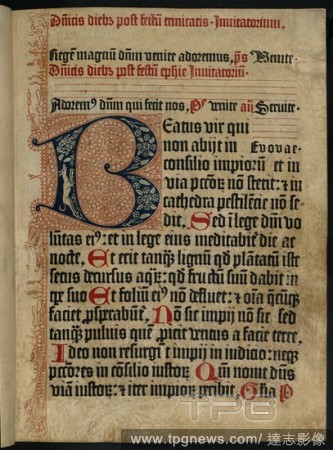 Dñicis diebꝫ post festũ trinitatis. Inuitatorium.
Regẽ magnũ dñm venite adoremus, p̃s Venite.
Dñicis diebꝫ post festũ ephie. Inuitatoriũ.
Adoremꝰ dñm qui fecit nos, Pꝰ venite añ Seruite.
Beatus vir qui
non abijt in Evovae
consilio impiorũ et in
via pccõꝝ nõ stetit: ⁊ in
cathedra pestilẽcie nõ se-
dit, Sed ĩ lege dñi vo
lũtas eiꝰ: et in lege eius meditabit̃ die ac
nocte, Et erit tanqꝫ lignũ qd̃ plãtatũ iste
secus decursus aqꝝ: qd̃ fructũ suũ dabit in
tꝑe suo Et foliũ eiꝰ nõ defluet: ⁊ oĩa q̃cũqꝫ
faciet ꝓsꝑabũt̃, Nõ sic impij nõ sic sed
tanqꝫ puluis quẽ ꝓicit ventus a facie terre,
Ideo non resurgũt impij in iudicio: neqꝫ
pccõres in cõsilio iustoꝝ Qm̃ nouit dñs
viã iustoꝝ: ⁊ iter impioꝝ ꝑibit, Gl̃ia P
TPG
www.tpgnews.com / 達志影像